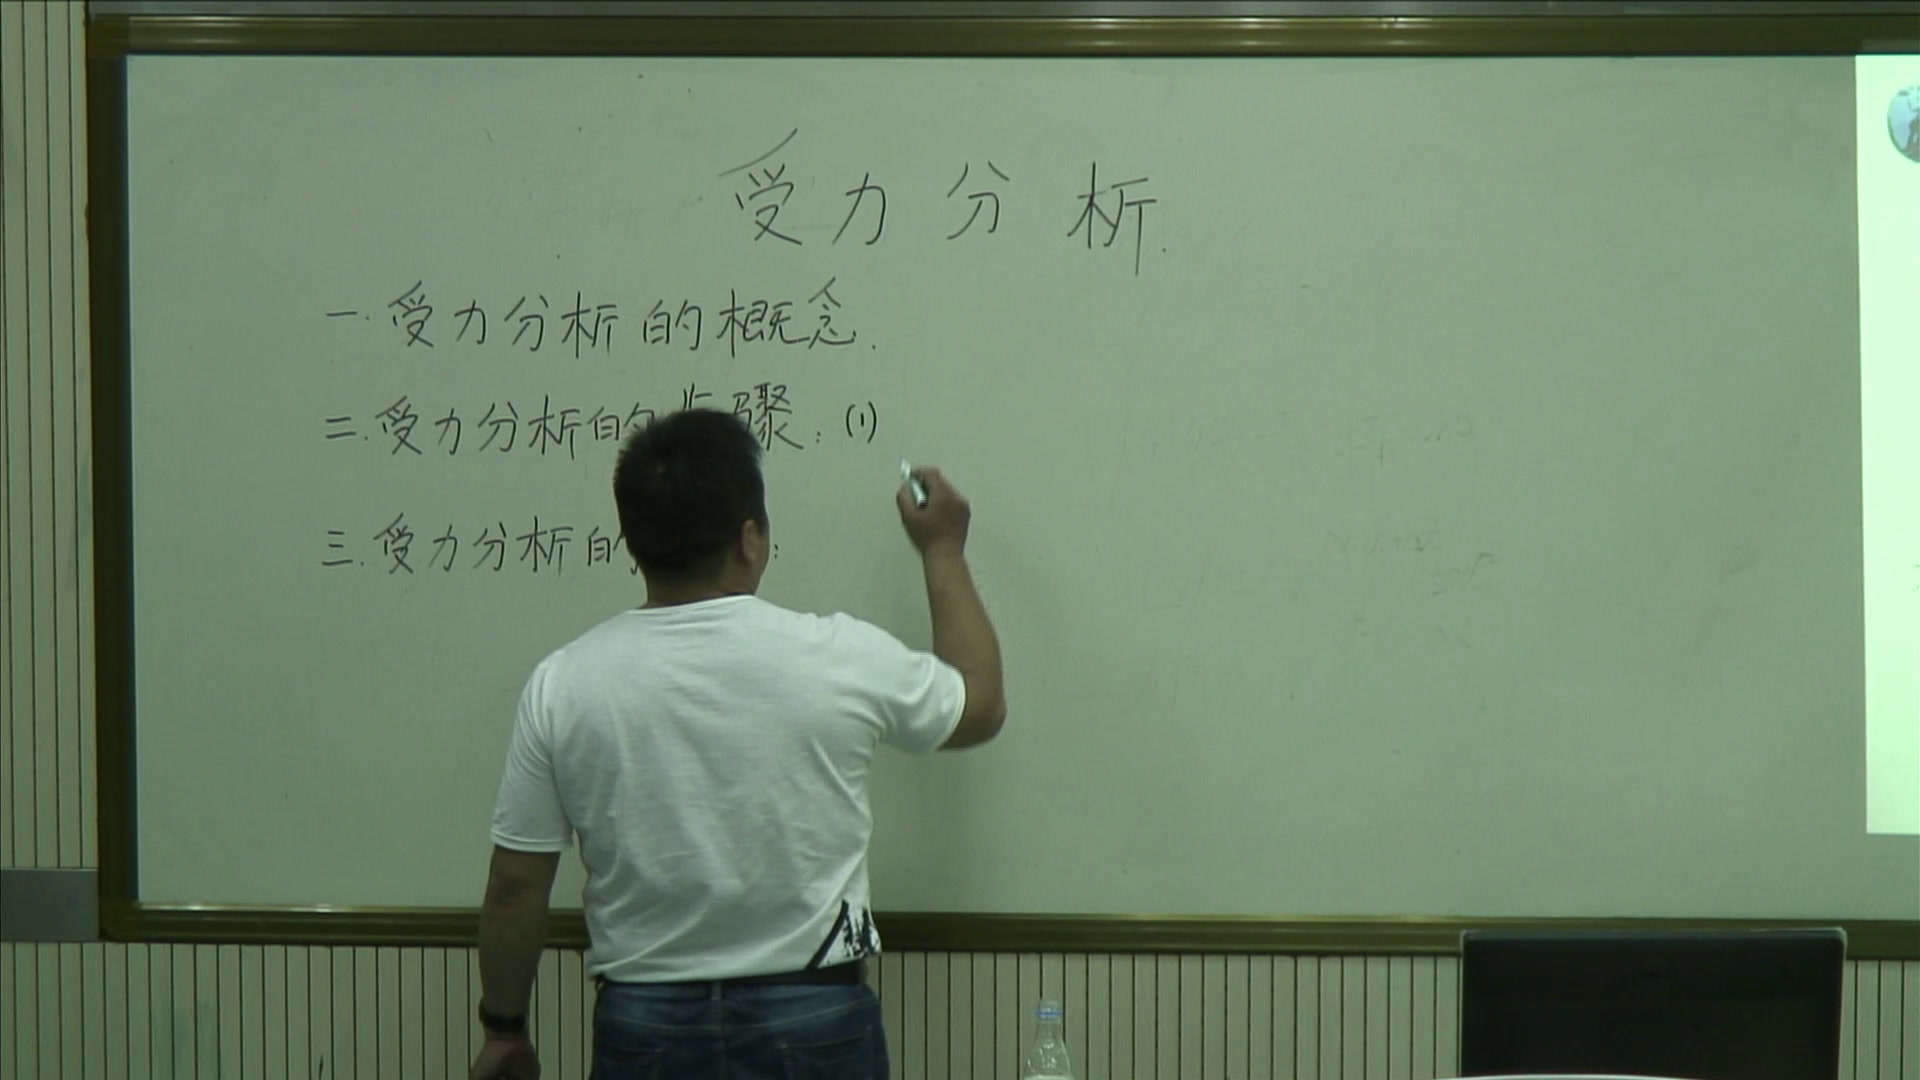 受力分析.
一.受力分析的概念.
二.受力分析的步骤:(1)
三.受力分析的: